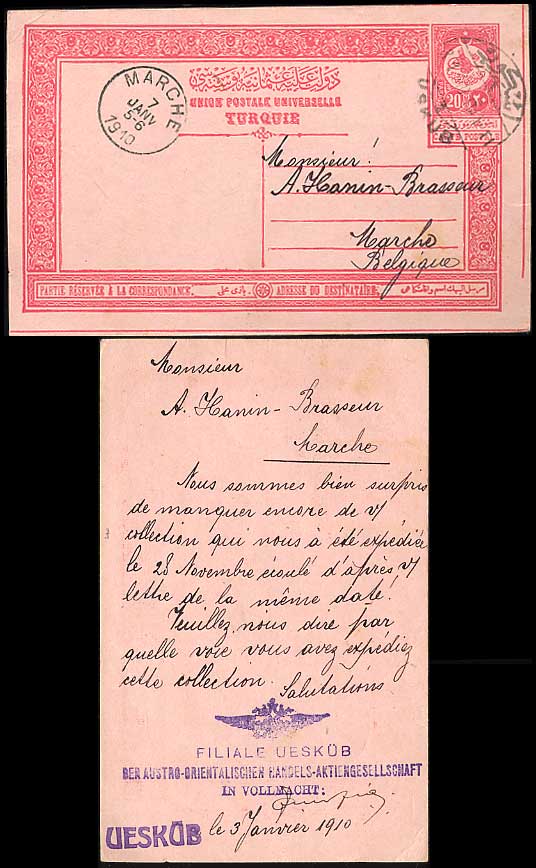 دولت عليهٔ عثمانيه پوسته سى
UNION POSTALE UNIVERSELLE
TURQUIE
MARCHE
7
JANV
5-6
1910
20
٢٠
Monsieur!
A. Hanin-Brasseur
Marche
Belgique
PARTIE RÉSERVÉE À LA CORRESPONDANCE.
ADRESSE DU DESTINATAIRE.
Monsieur
A. Hanin-Brasseur
Marche
Nous sommes bien surpris
de manquer encore de v/
collection qui nous à été expédiée
le 28 Novembre écoulé d'après v/
lettre de la même date!
Veuillez nous dire par
quelle voie vous avez expédiez
cette collection.
Salutations
FILIALE UESKÜB
DER AUSTRO-ORIENTALISCHEN HANDELS-AKTIENGESELLSCHAFT
IN VOLLMACHT:
UESKÜB le 3 Janvier 1910